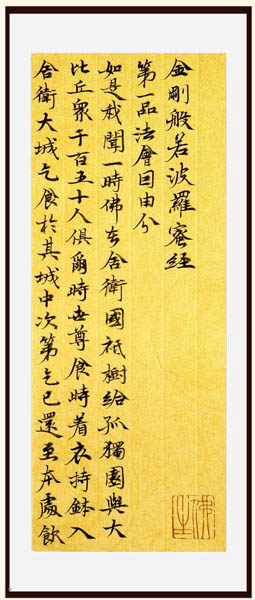 金剛般若波羅蜜經
第一品法會因由分
如是我聞一時佛在舍衛國祇樹給孤獨園與大
比丘眾千百五十人俱爾時世尊食時着衣持鉢入
舍衛大城乞食於其城中次第乞已還至本處飲
佛